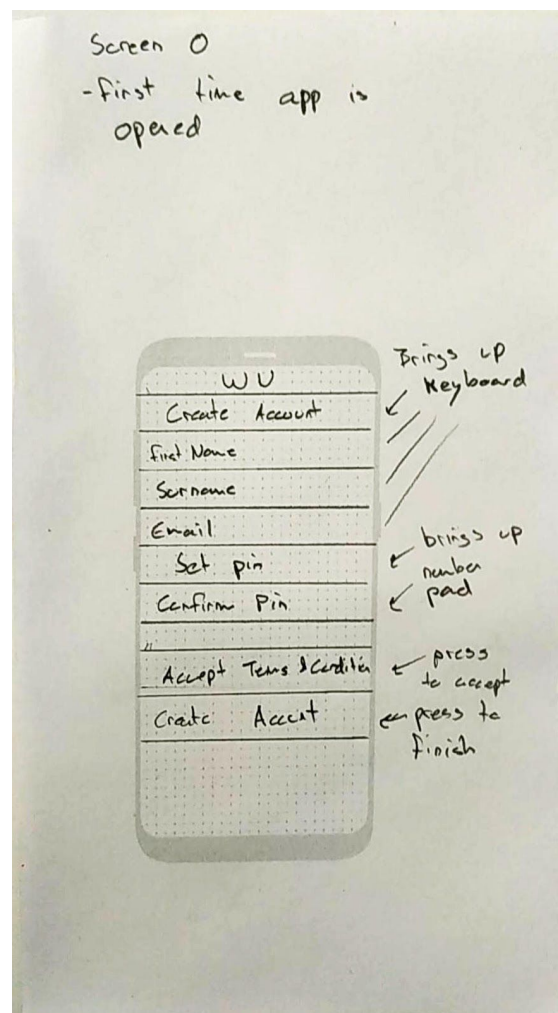 Screen 0
- first time app is
opened
WU
Create Account
First Name
Surname
Email
Set pin
Confirm Pin
"
Accept Terms & Condition
Create Account
Brings up
Keyboard
brings up
number
pad
press
to accept
press to
finish